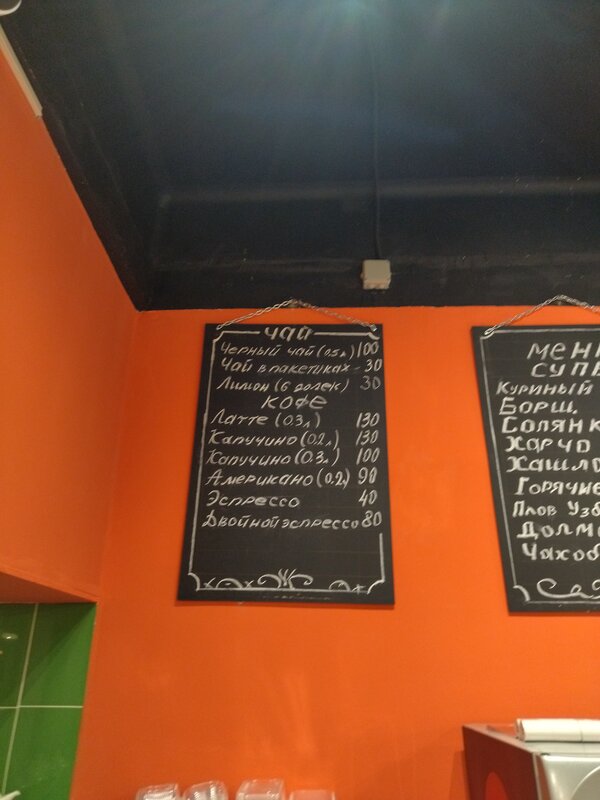 чай
Черный чай (0.5л) 100
Чай в пакетиках - 30
Лимон (6 долек) 30
кофе
Латте (0.3л) 130
Капучино (0.2л) 130
Капучино (0.3л) 100
Американо (0.2л) 90
Эспрессо 40
Двойной эспрессо 80
Куриный
Борщ.
Харчо
Горячие
Плов Узб